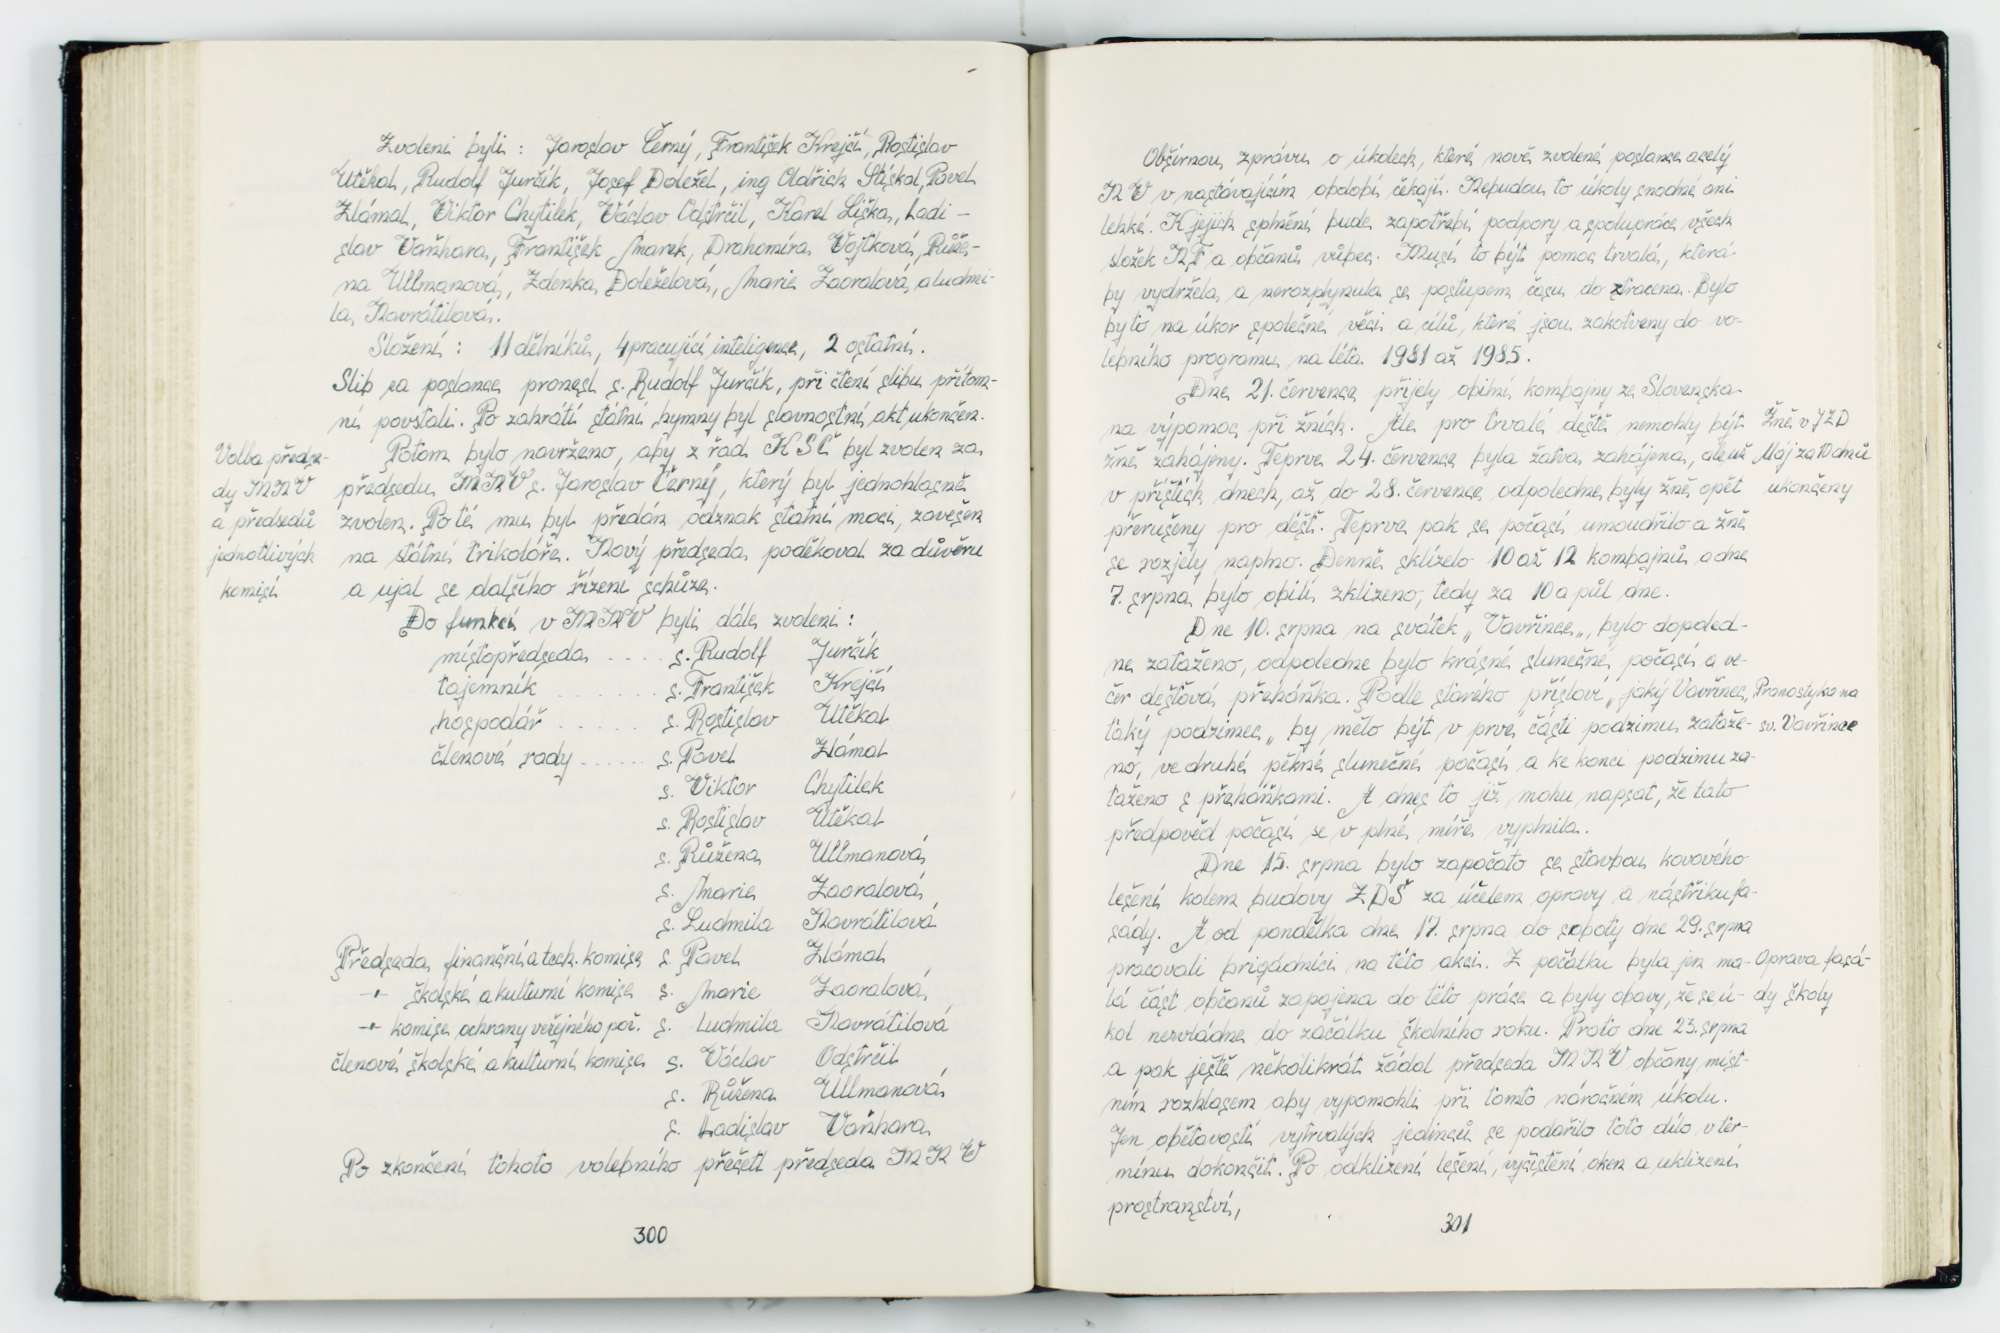 Zvoleni byli : Jaroslav Černý, František Krejčí, Rostislav
Utěkal, Rudolf Jurčík, Josef Doležel, ing Oldřich Stískal, Pavel
Zlámal, Viktor Chytilek, Václav Odstrčil, Karel Liška, Ladi -
slav Vaňhara, František Marek, Drahomíra Vojtková, Růže-
na Ullmanová, Zdenka Doleželová, Marie Zaoralová, a Ludmi-
la Navrátilová.
Složení : 11 dělníků, 4 pracující inteligence, 2 ostatní.
Slib za poslance pronesl s. Rudolf Jurčík, při čtení slibu přítom-
ní povstali. Po zahrátí státní hymny byl slavnostní akt ukončen.
Volba předse-
dy MNV
a předsedů
jednotlivých
komisí
Potom bylo navrženo, aby z řad KSČ byl zvolen za
předsedu MNV s. Jaroslav Černý, který byl jednohlasně
zvolen. Po té mu byl předán odznak státní moci, zavěšen
na státní trikolóře. Nový předseda poděkoval za důvěru
a ujal se dalšího řízení schůze.
Do funkcí v MNV byli dále zvoleni :
místopředseda . . . . s. Rudolf Jurčík
tajemník . . . . . . . s. František Krejčí
hospodář . . . . . . s. Rostislav Utěkal
členové rady . . . . . . s. Pavel Zlámal
s. Viktor Chytilek
s. Rostislav Utěkal
s. Růžena Ullmanová
s. Marie Zaoralová
s. Ludmila Navrátilová
Předseda finanční a tech. komise s. Pavel Zlámal
-"- školské a kulturní komise s. Marie Zaoralová
-"- komise ochrany veřejného poř. s. Ludmila Navrátilová
členové školské a kulturní komise s. Václav Odstrčil
s. Růžena Ullmanová
s. Ladislav Vaňhara
Po zkončení tohoto volebního přečetl předseda MNV
300
Obšírnou zprávu o úkolech, které nově zvolené poslance a celý
NV v nastávajícím období čekají. Nebudou to úkoly snadné ani
lehké. K jejich splnění bude zapotřebí podpory a spolupráce všech
složek NF a občanů vůbec. Musí to být pomoc trvalá, která
by vydržela a nerozplynula se postupem času do ztracena. Bylo
by to na úkor společné věci a cílů, které jsou zakotveny do vo-
lebního programu na léta 1981 až 1985.
Dne 21. července přijely obilní kombajny ze Slovenska
na výpomoc při žních. Ale pro trvalé deště nemohly být
žně zahájeny. Teprve 24. července byla žatva zahájena, ale už
v příštích dnech, až do 28. července odpoledne byly žně opět
přerušeny pro déšť. Teprve pak se počasí umoudřilo a žně
se rozjely naplno. Denně sklízelo 10 až 12 kombajnů a dne
7. srpna bylo obilí zklizeno, tedy za 10 a půl dne.
Žně v JZD
Máj za 10 dnů
ukončeny
Dne 10. srpna na svátek „Vavřince„, bylo dopoled-
ne zataženo, odpoledne bylo krásné slunečné počasí a ve-
čer dešťová přeháňka. Podle starého přísloví „jaký Vavřinec,
taký podzimec„ by mělo být v prvé části podzimu zataže-
no, ve druhé pěkné slunečné počasí a ke konci podzimu za-
taženo s přeháňkami. A dnes to již mohu napsat, že tato
předpověď počasí se v plné míře vyplnila.
Pranostyka na
sv. Vavřince
Dne 15. srpna bylo započato se stavbou kovového
lešení kolem budovy ZDŠ za účelem opravy a nástřiku fa-
sády. A od pondělka dne 17. srpna do soboty dne 29. srpna
pracovali brigádníci na této akci. Z počátku byla jen ma-
lá část občanů zapojena do této práce a byly obavy, že se ú-
kol nezvládne do začátku školního roku. Proto dne 23. srpna
a pak ještě několikrát žádal předseda MNV občany míst-
ním rozhlasem aby vypomohli při tomto náročném úkolu.
Jen obětavostí vytrvalých jedinců se podařilo toto dílo v ter-
mínu dokončit. Po odklizení lešení, vyčistění oken a uklizení
prostranství,
Oprava fasá-
dy školy
301